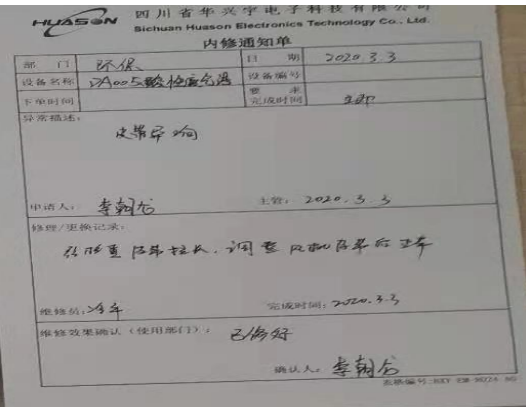 HUASON 四川省华兴宇电子科技有限公司
Sichuan Huason Electronics Technology Co., Ltd.
内修通知单
部 门 环保 日 期 2020.3.3
设备名称 DA005酸 设备编号
下单时间 要求完成时间 立即
异常描述：
皮带异响
申请人： 李朝 主管： 2020.3.3
修理/更换记录：
皮带拉长，调整风机皮带后正车
维修员： 完成时间：2020.3.3
维修效果确认（使用部门）： 已修好
确认人： 李朝
表格编号：HXY